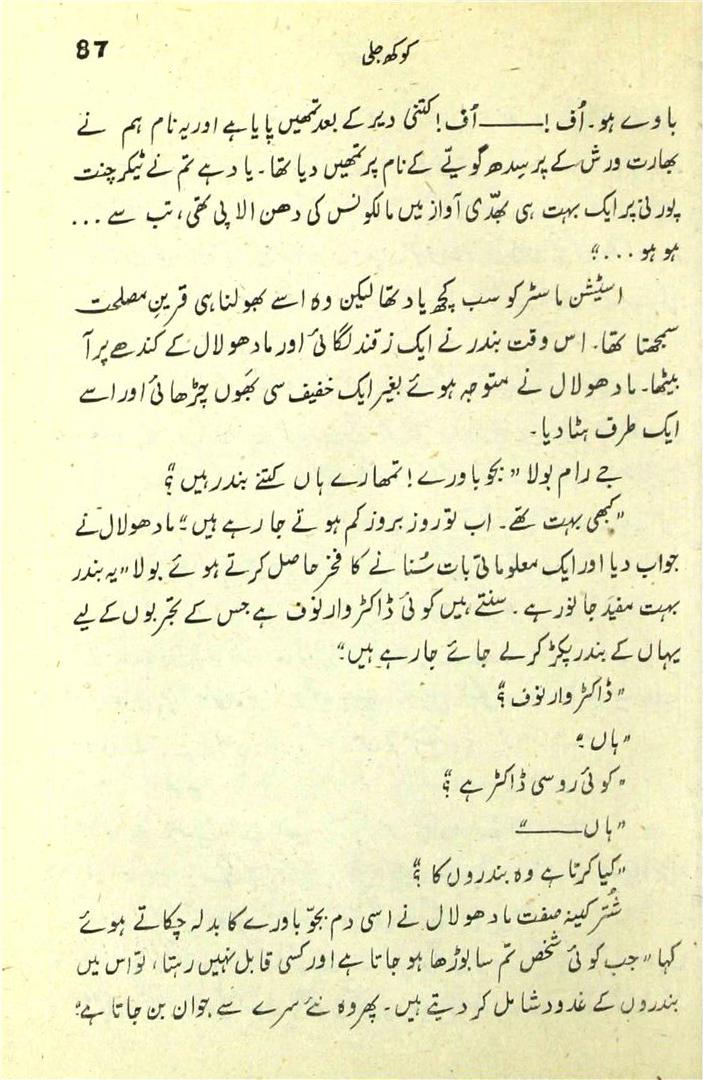 87
کوکھ جلی
باوے ہو۔ اُف!ــــــ اُف! کتنی دیر کے بعد تمھیں پایا ہے اور یہ نام ہم نے
بھارت ورش کے پرسِدھ گویّے کے نام پر تمھیں دیا تھا۔ یاد ہے تم نے ٹیکر چنت
پورنی پر ایک بہت ہی بھدّی آواز میں مالکونس کی دھن الاپی تھی، تب سے ...
ہو ہو ..."
اسٹیشن ماسٹر کو سب کچھ یاد تھا لیکن وہ اسے بھولنا ہی قرینِ مصلحت
سمجھتا تھا۔ اس وقت بندر نے ایک زقند لگائی اور مادھولال کے کندھے پر آ
بیٹھا۔ مادھولال نے متوجہ ہوئے بغیر ایک خفیف سی بھَوں چڑھائی اور اسے
ایک طرف ہٹا دیا۔
جے رام بولا "بجّو باورے! تمھارے ہاں کتنے بندر ہیں؟"
"کبھی بہت تھے۔ اب تو روز بروز کم ہوتے جا رہے ہیں" مادھولال نے
جواب دیا اور ایک معلوماتی بات سُنانے کا فخر حاصل کرتے ہوئے بولا "یہ بندر
بہت مفید جانور ہے۔ سنتے ہیں کوئی ڈاکٹر وارنوف ہے جس کے تجربوں کے لیے
یہاں کے بندر پکڑ کر لے جائے جا رہے ہیں"
"ڈاکٹر وارنوف؟"
"ہاں"
"کوئی روسی ڈاکٹر ہے؟"
"ہاں ــــــ"
"کیا کرتا ہے وہ بندروں کا؟"
شُتر کینہ صفت مادھولال نے اسی دم بجّو باورے کا بدلہ چکاتے ہوئے
کہا "جب کوئی شخص تم سا بوڑھا ہو جاتا ہے اور کسی قابل نہیں رہتا، تو اس میں
بندروں کے غدود شامل کر دیتے ہیں۔ پھر وہ نئے سرے سے جوان بن جاتا ہے"